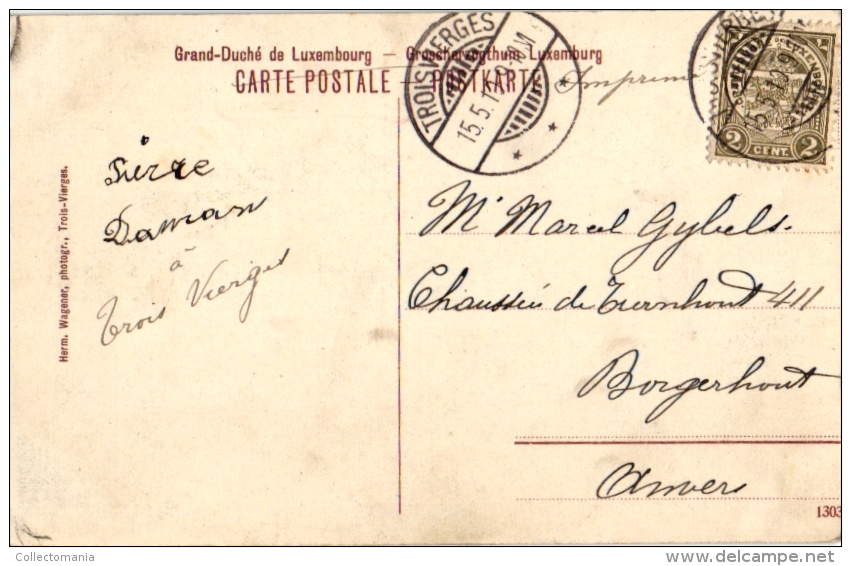 Grand-Duché de Luxembourg — Grossherzogthum Luxemburg
CARTE POSTALE — POSTKARTE
Imprimé
TROISVIERGES
15.5.12
2 CENT. 2
Herm. Wagener, photogr., Trois-Vierges.
Pierre
Daman
à
Trois Vierges
Mr Marcel Gybels.
Chaussée de Turnhout 411
Borgerhout
Anvers
1303
Collectomania
delcampe.net